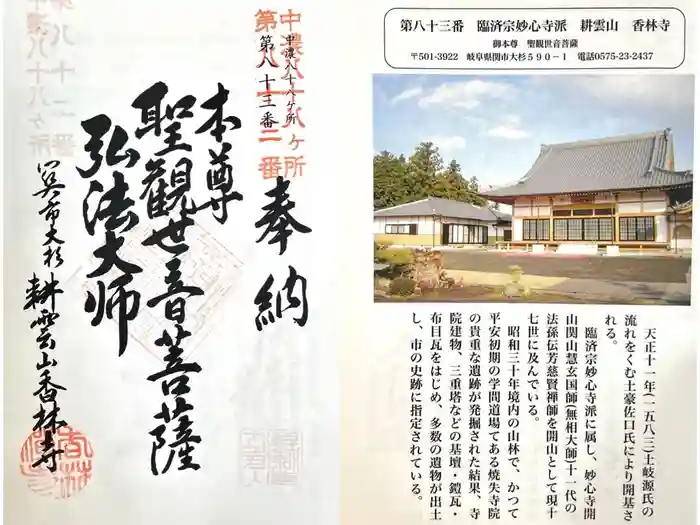 中濃八十八ヶ所
第八十二番
中濃八十八ヶ所
第八十三番
奉納
本尊
聖観世音菩薩
弘法大師
関市大杉 耕雲山香林寺
第八十二番
中濃八十八ヶ所
第八十三番　臨済宗妙心寺派　耕雲山　香林寺
御本尊　聖観世音菩薩
〒501-3922　岐阜県関市大杉５９０－１　電話0575-23-2437
天正十一年(一五八三)土岐源氏の
流れをくむ土豪佐口氏により開基さ
れる。
臨済宗妙心寺派に属し、妙心寺開
山関山慧玄国師(無相大師)十一代の
法孫伝芳慈賢禅師を開山として現十
七世に及んでいる。
昭和三十年境内の山林で、かつて
平安初期の学問道場である焼失寺院
の貴重な遺跡が発掘された結果、寺
院建物、三重塔などの基壇・鎧瓦・
布目瓦をはじめ、多数の遺物が出土
し、市の史跡に指定されている。